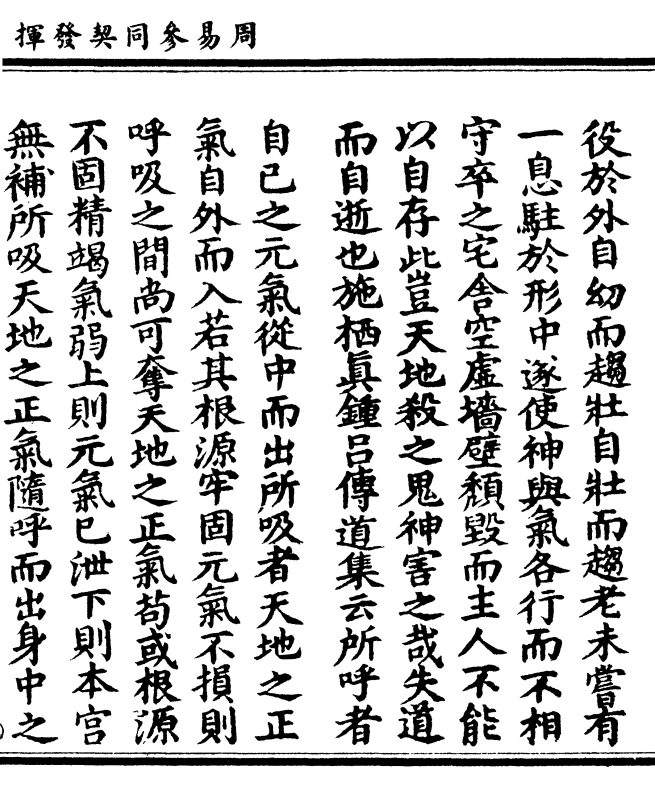 周易參同契發揮
役於外自幼而趨壯自壯而趨老未嘗有
一息駐於形中遂使神與氣各行而不相
守卒之宅舎空虛墻壁頹毀而主人不能
以自存此豈天地殺之鬼神害之哉失道
而自逝也施栖眞鍾呂傳道集云所呼者
自己之元氣從中而出所吸者天地之正
氣自外而入若其根源牢固元氣不損則
呼吸之間尚可奪天地之正氣苟或根源
不固精竭氣弱上則元氣已泄下則本宮
無補所吸天地之正氣隨呼而出身中之